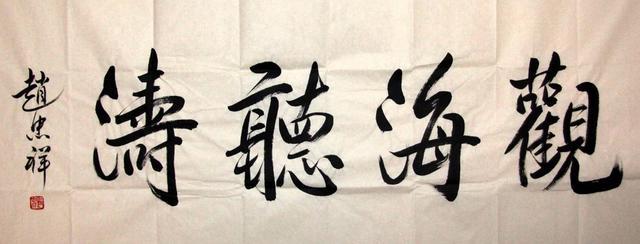 觀海聽濤
趙忠祥